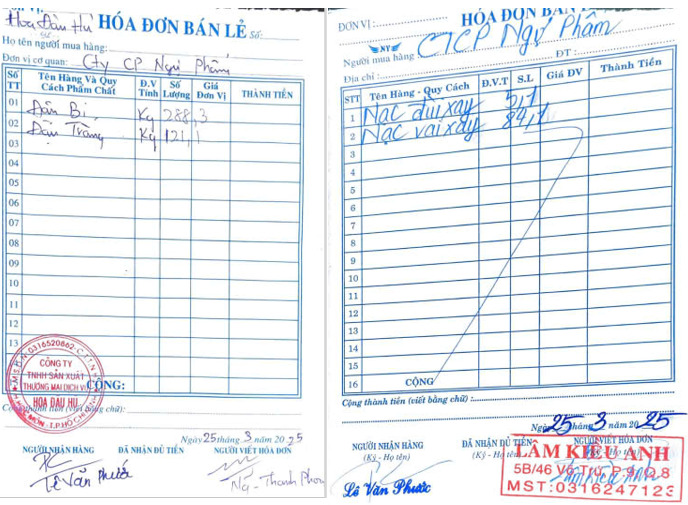 HÓA ĐƠN BÁN LẺ
Hoa Đậu Hủ
Số:
Họ tên người mua hàng:
Đơn vị cơ quan: Cty CP Ngư Phẩm
Số TT Tên Hàng Và Quy Cách Phẩm Chất Đ.V Tính Số Lượng Giá Đơn Vị THÀNH TIỀN
01 Đậu Bi Kg 288,3
02 Đậu Trắng Kg 121,1
03
04
05
06
07
08
09
10
11
12
13
M.S.D.N:0316520862-C.T.T.N.H
CÔNG TY
TNHH SẢN XUẤT
THƯƠNG MẠI DỊCH VỤ
HOA ĐẬU HỦ
CỘNG:
Cộng thành tiền (viết bằng chữ):
Ngày 25 tháng 3 năm 2025
NGƯỜI NHẬN HÀNG ĐÃ NHẬN ĐỦ TIỀN NGƯỜI VIẾT HÓA ĐƠN
Lê Văn Phước
HÓA ĐƠN BÁN L
ĐƠN VỊ:
NY
Người mua hàng CTCP Ngư Phẩm
Địa chỉ: ĐT:
STT Tên Hàng - Quy Cách Đ.V.T S.L Giá ĐV Thành Tiền
1 Nạc đùi xay 51,1
2 Nạc vai xay 84,1
3
4
5
6
7
8
9
10
11
12
13
14
15
16 CỘNG
Cộng thành tiền (viết bằng chữ):
Ngày 25 tháng 3 năm 2025
NGƯỜI NHẬN HÀNG ĐÃ NHẬN ĐỦ TIỀN NGƯỜI VIẾT HÓA ĐƠN
(Ký - Họ tên) (Ký - Họ tên)
Lê Văn Phước
LÂM KIỀU ANH
5B/46 Võ Trứ, P.9, Q.8
MST:0316247123